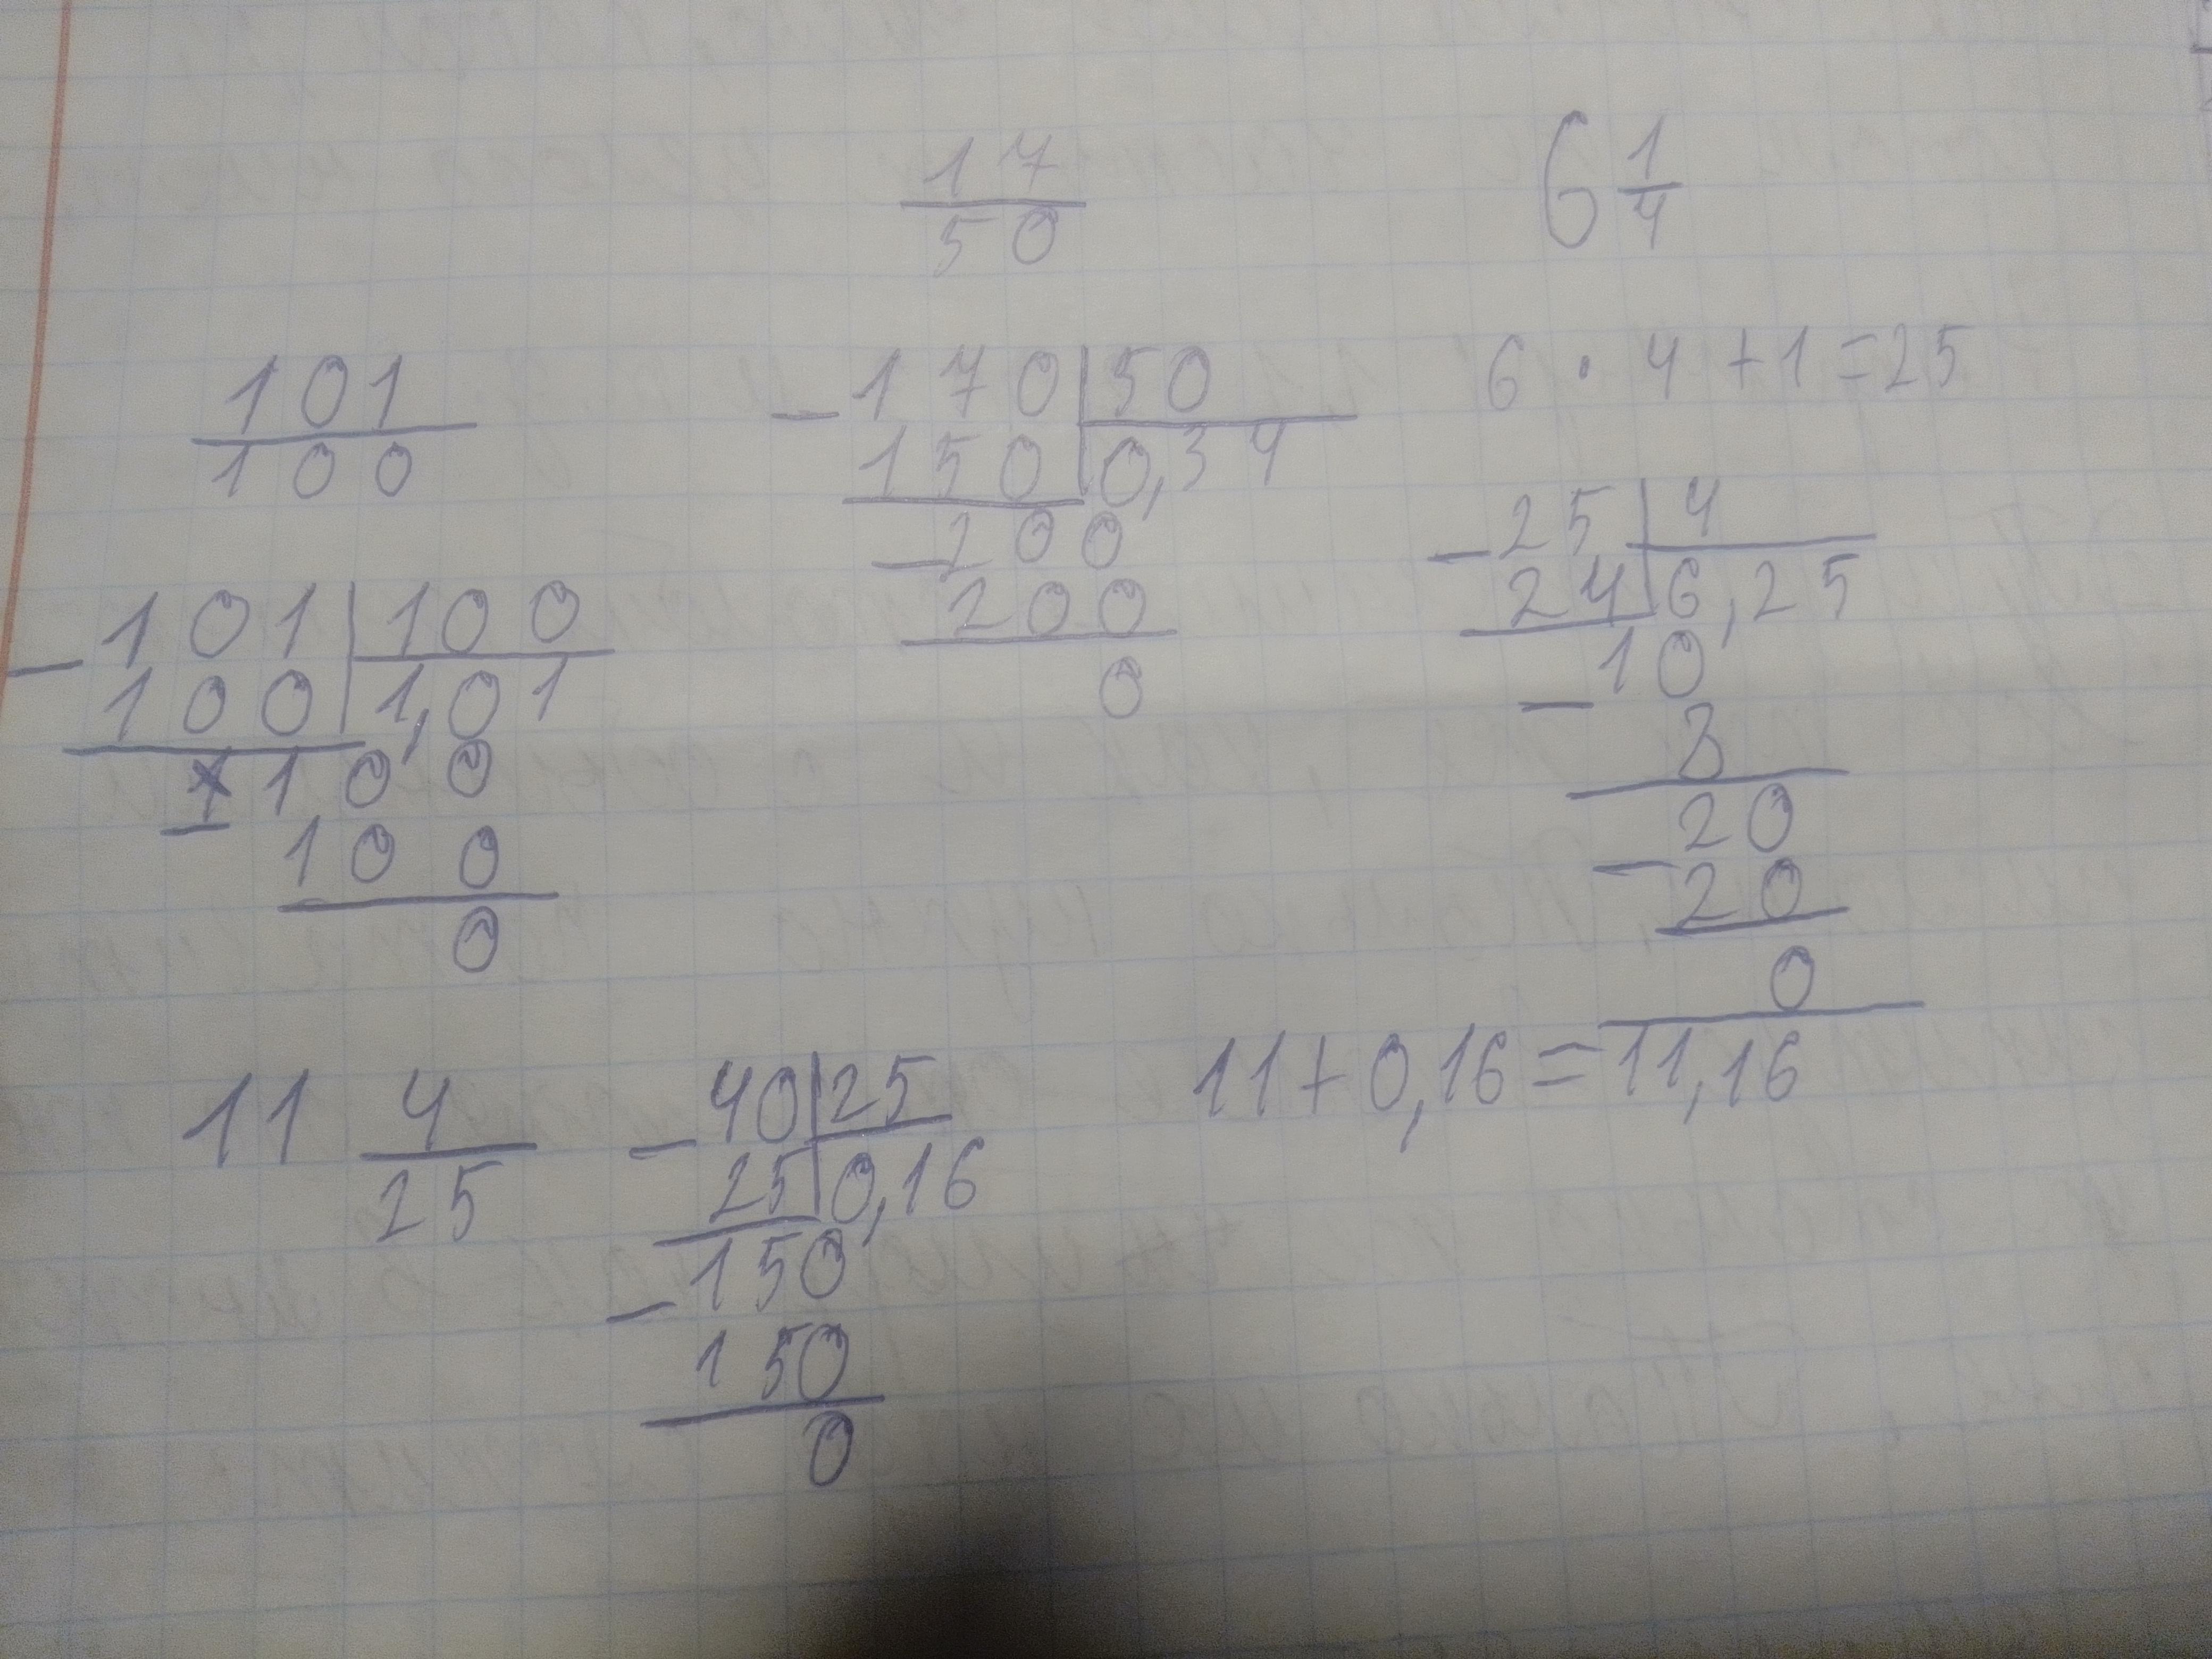 17
50
170 | 50
- 150 | 0,34
- 200
200
0
6 1/4
6 · 4 + 1 = 25
- 25 | 4
24 | 6,25
- 10
8
- 20
20
0
101
100
- 101 | 100
100 | 1,01
- 100
100
0
11 4/25
- 40 | 25
25 | 0,16
- 150
150
0
11 + 0,16 = 11,16